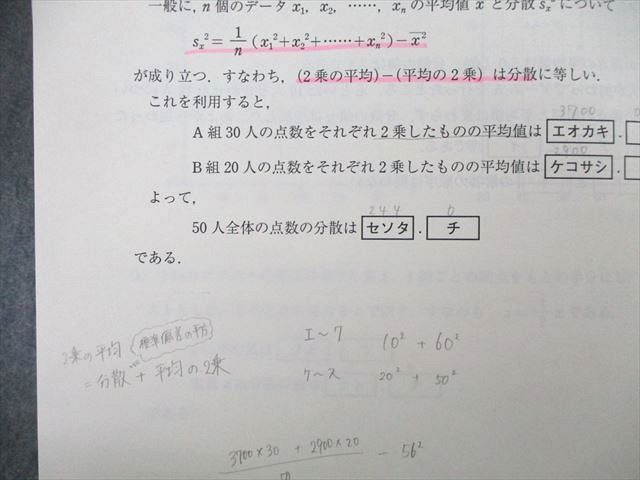 一般に，n 個のデータ x₁, x₂, ……, xₙ の平均値 x̄ と分散 sₓ² について
sₓ² = 1/n (x₁²+x₂²+……+xₙ²)−x̄²
が成り立つ．すなわち，(2乗の平均)−(平均の2乗) は分散に等しい．
これを利用すると，
3700
A 組 30 人の点数をそれぞれ 2 乗したものの平均値は エオカキ .
2900
B 組 20 人の点数をそれぞれ 2 乗したものの平均値は ケコサシ .
よって，
244 0
50 人全体の点数の分散は セソタ . チ
である．
2乗の平均 標準偏差の平方
=分散 + 平均の2乗
エ〜ク 10² + 60²
ケ〜ス 20² + 50²
3700×30 + 2900×20 / 50 − 56²